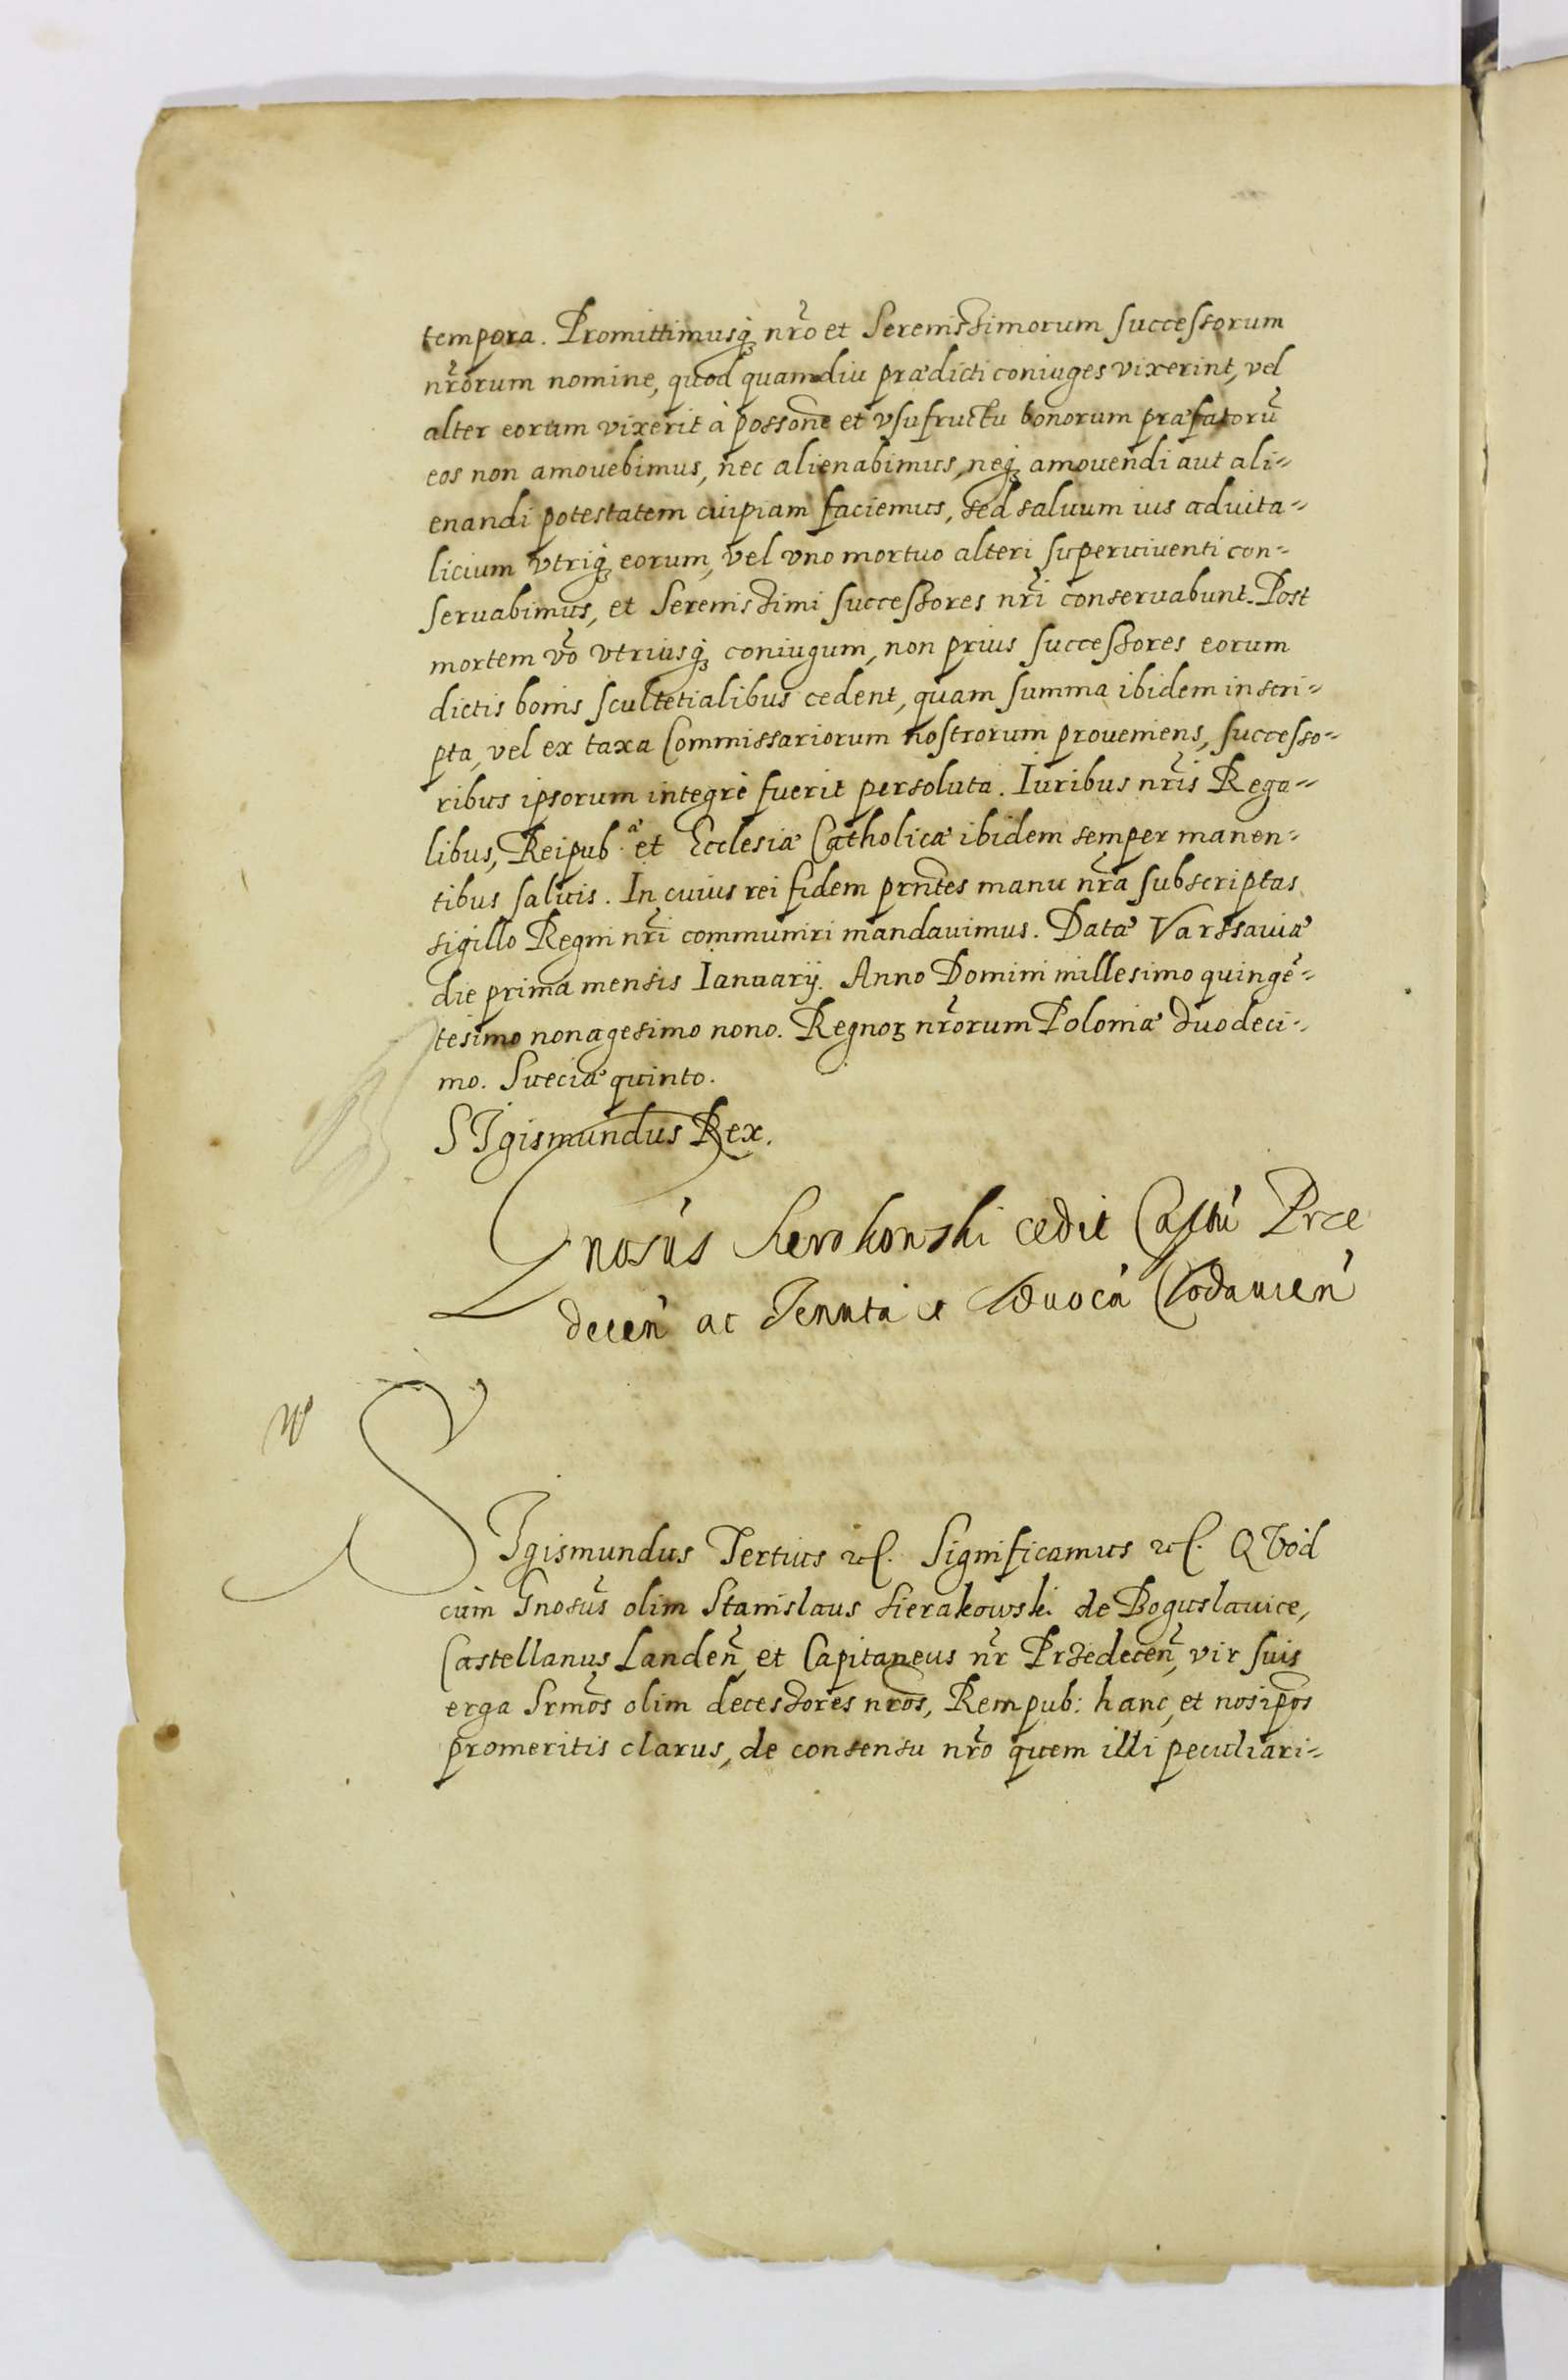 tempora. Promittimusq; nr̃o et Serenissimorum successorum
nr̃orum nomine, quod quamdiu prædicti coniuges vixerint, vel
alter eorum vixerit à possone͂ et vsufructu bonorum præfatorũ
eos non amouebimus, nec alienabimus, neq; amouendi aut ali=
enandi potestatem cuipiam faciemus, sed saluum ius aduita=
licium vtriq; eorum, vel vno mortuo alteri superuiuenti con=
seruabimus, et Serenissimi successores nr̃i conseruabunt. Post
mortem vo͂ vtriusq; coniugum, non prius successores eorum
dictis bonis scultetialibus cedent, quam summa ibidem inscri=
pta, vel ex taxa Commissariorum nostrorum proueniens, successo=
ribus ipsorum integrè fuerit persoluta. Iuribus nr̃is Rega=
libus, Reipub.æ et Ecclesiæ Catholicæ ibidem semper manen=
tibus saluis. In cuius rei fidem prn͂tes manu nr̃a subscriptas
sigillo Regni nr̃i communiri mandauimus. Datæ Varssauiæ
die prima mensis Ianuarij. Anno Domini millesimo quingẽ=
tesimo nonagesimo nono. Regnoꝝ nr̃orum Poloniæ duodeci=
mo. Sueciæ quinto.
SIgismundus Rex.
Gnosus cedit Prze
decen̄ ac Tenuta et Aduoca Clodauien̄
SIgismundus Tertius etc. Significamus etc. QVod
cùm Gnosus̃ olim Stanislaus Sierakowski de Boguslauice,
Castellanus Landen͂, et Capitaneus nr̃ Przedecen͂, vir suis
erga Srmo͂s olim decessores nr̃os, Rempub: hanc, et nos ipo͂s
promeritis clarus, de consensu nr̃o quem illi peculiari=